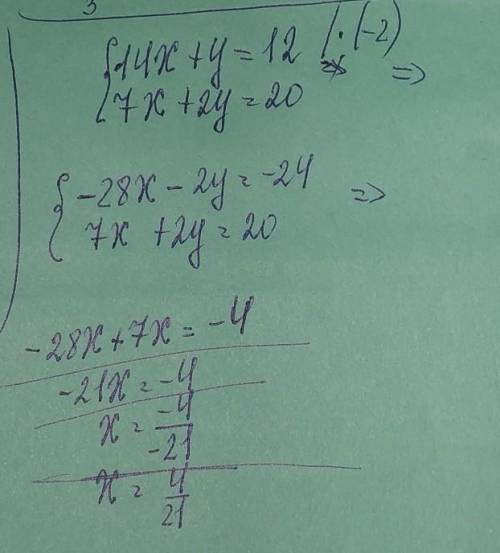 3
{14x + y = 12 | · (-2)
{7x + 2y = 20 =>
{-28x - 2y = -24 =>
{7x + 2y = 20
-28x + 7x = -4
-21x = -4
x = -4/-21
x = 4/21